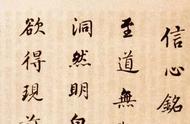 信心銘
至道無
洞然明白
欲得現前